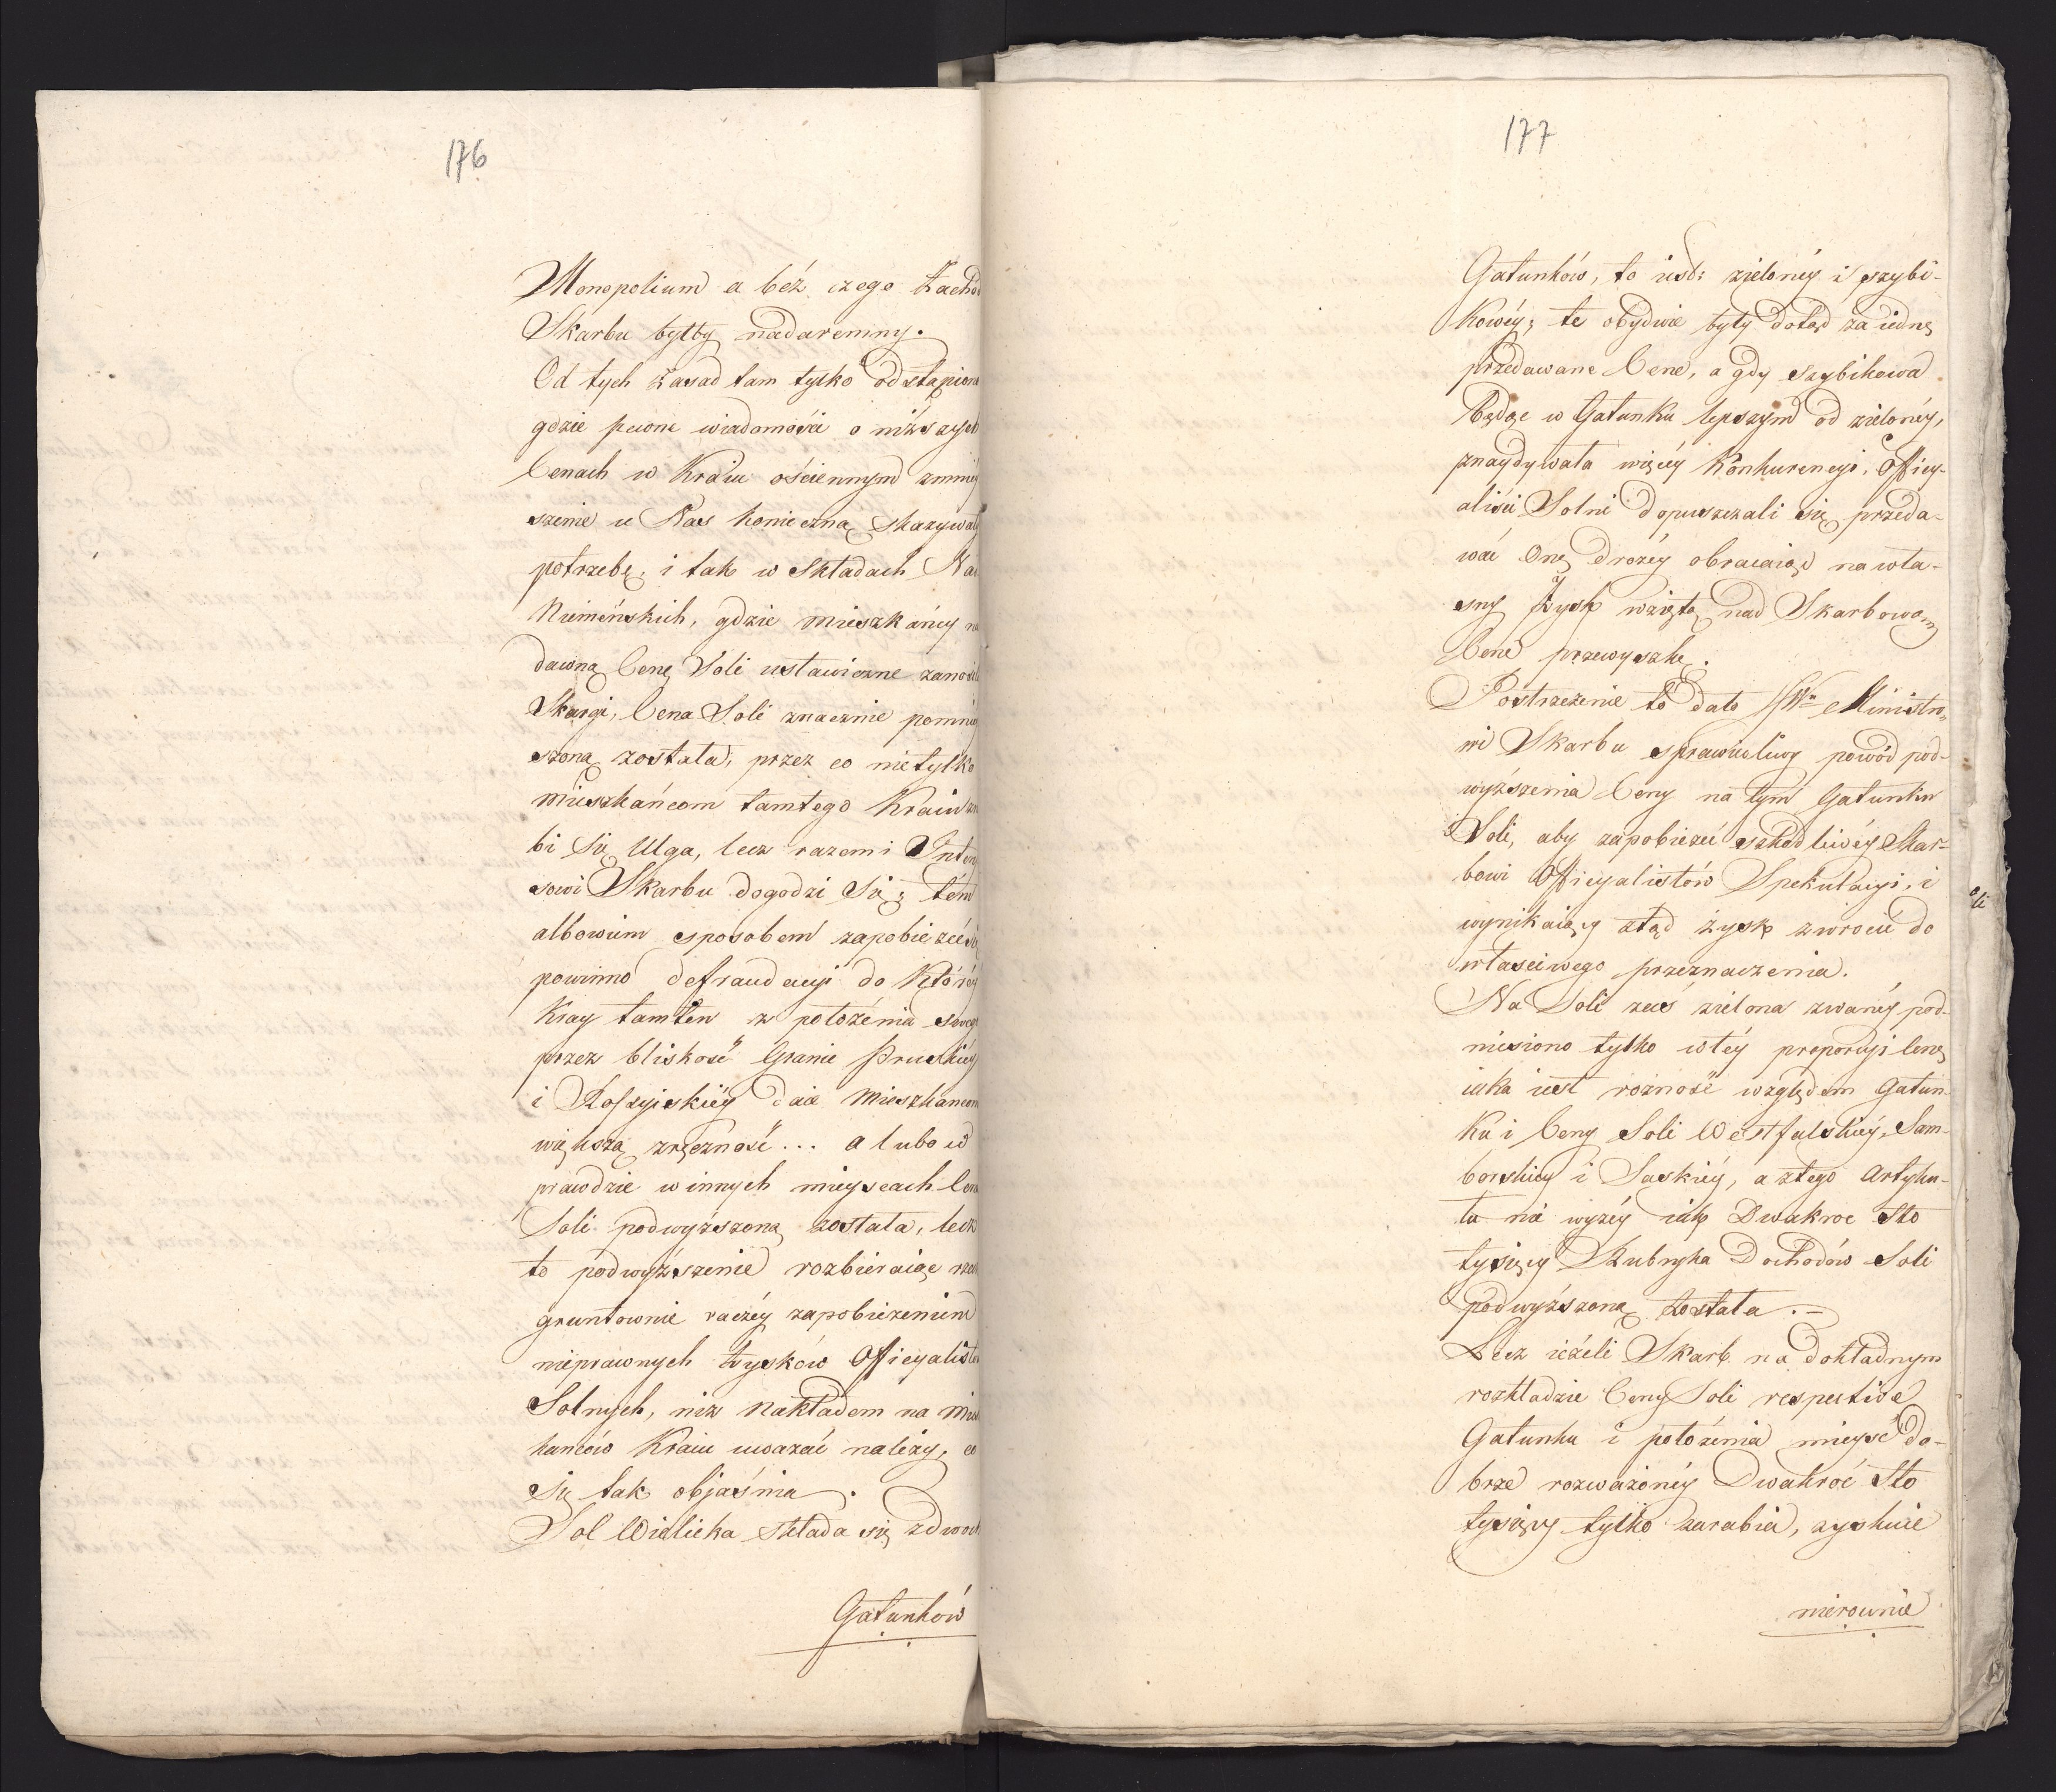 176
Monopolium a béz czego Zachod
Skarbu byłby nadaremny.
Od tych zasad tam tylko odstąpiono
gdzie pewne wiadomości o niższych
Cenach w Kraiu ościennym zmniey
szenie u Nas konieczną skazywały
potrzebę, i tak w Składach Nad
Niemeńskich, gdzie Mieszkańcy na
dawną Cenę Soli ustawiczne zanosili
Skargi, Cena Soli znacznie pomniey
szoną została, przez co nietylko
Mieszkańcom tamtego Kraiu zro
bi się Ulga, lecz razem i Inter
sowi Skarbu dogodzi się; tém
albowiem sposobem zapobiezéć się
powinno defraudacyi do któréy
Kray tamten z położenia swego
przez bliskość Granic Pruskiéy
i Rossyiskiéy daie Mieszkancom
większą zręczność ... a lubo w
prawdzie w innych mieyscach Cena
Soli podwyższoną została, lecz
to podwyższenie rozbieraiąc rzecz
gruntownie raczéy zapobieżeniem
nieprawnych zysków Officyalistów
Solnych, niż Nakładem na Miesz
kancow Kraiu uwazać należy, co
się tak objaśnia.
Sol Wielicka składa się z dwoch
Gatunków
177
Gatunków, to iest: zielonéy i szybi-
kowéy; te obydwie były dotąd za iednę
przedawane Cene, a gdy szybikowa
będąc w Gatunku lepszym od zielonéy,
znaydywała więcéy Konkurencyi, Officy-
aliści Solni dopuszczali się przeda-
wać Onę drożéy obracaiąc na wła-
sny Zysk wziętą nad Skarbową
Cenę przewyszkę.
Postrzeżenie to dało JWu Ministro,,
wi Skarbu sprawiedliwy powód pod-
wyższenia Ceny na tym Gatunku
Soli, aby zapobiezeć szkodliwéy Skar-
bowi Officyalistów Spekulacyi, i
wynikaiący ztąd zysk zwrocić do
właściwego przeznaczenia.
Na Soli zaś zielona zwanéy pod-
niesiono tylko w téy proporcyi Cenę
iaka iest rożność względem Gatun-
ku i Ceny Soli Westfalskiéy, Sam-
borskiey i Saskiéy, a z tego Artyku-
łu nie wyżéy iak Dwakroc Sto
tysięcy Rubryka Dochodów Soli
podwyższoną została. –
Lecz ieżeli Skarb na dokładnym
rozkładzie Ceny Soli respective
Gatunku i położenia mieysc do-
brze rozważonéy Dwakroć Sto
tysięcy tylko zarabia, zyskuie
nierownie